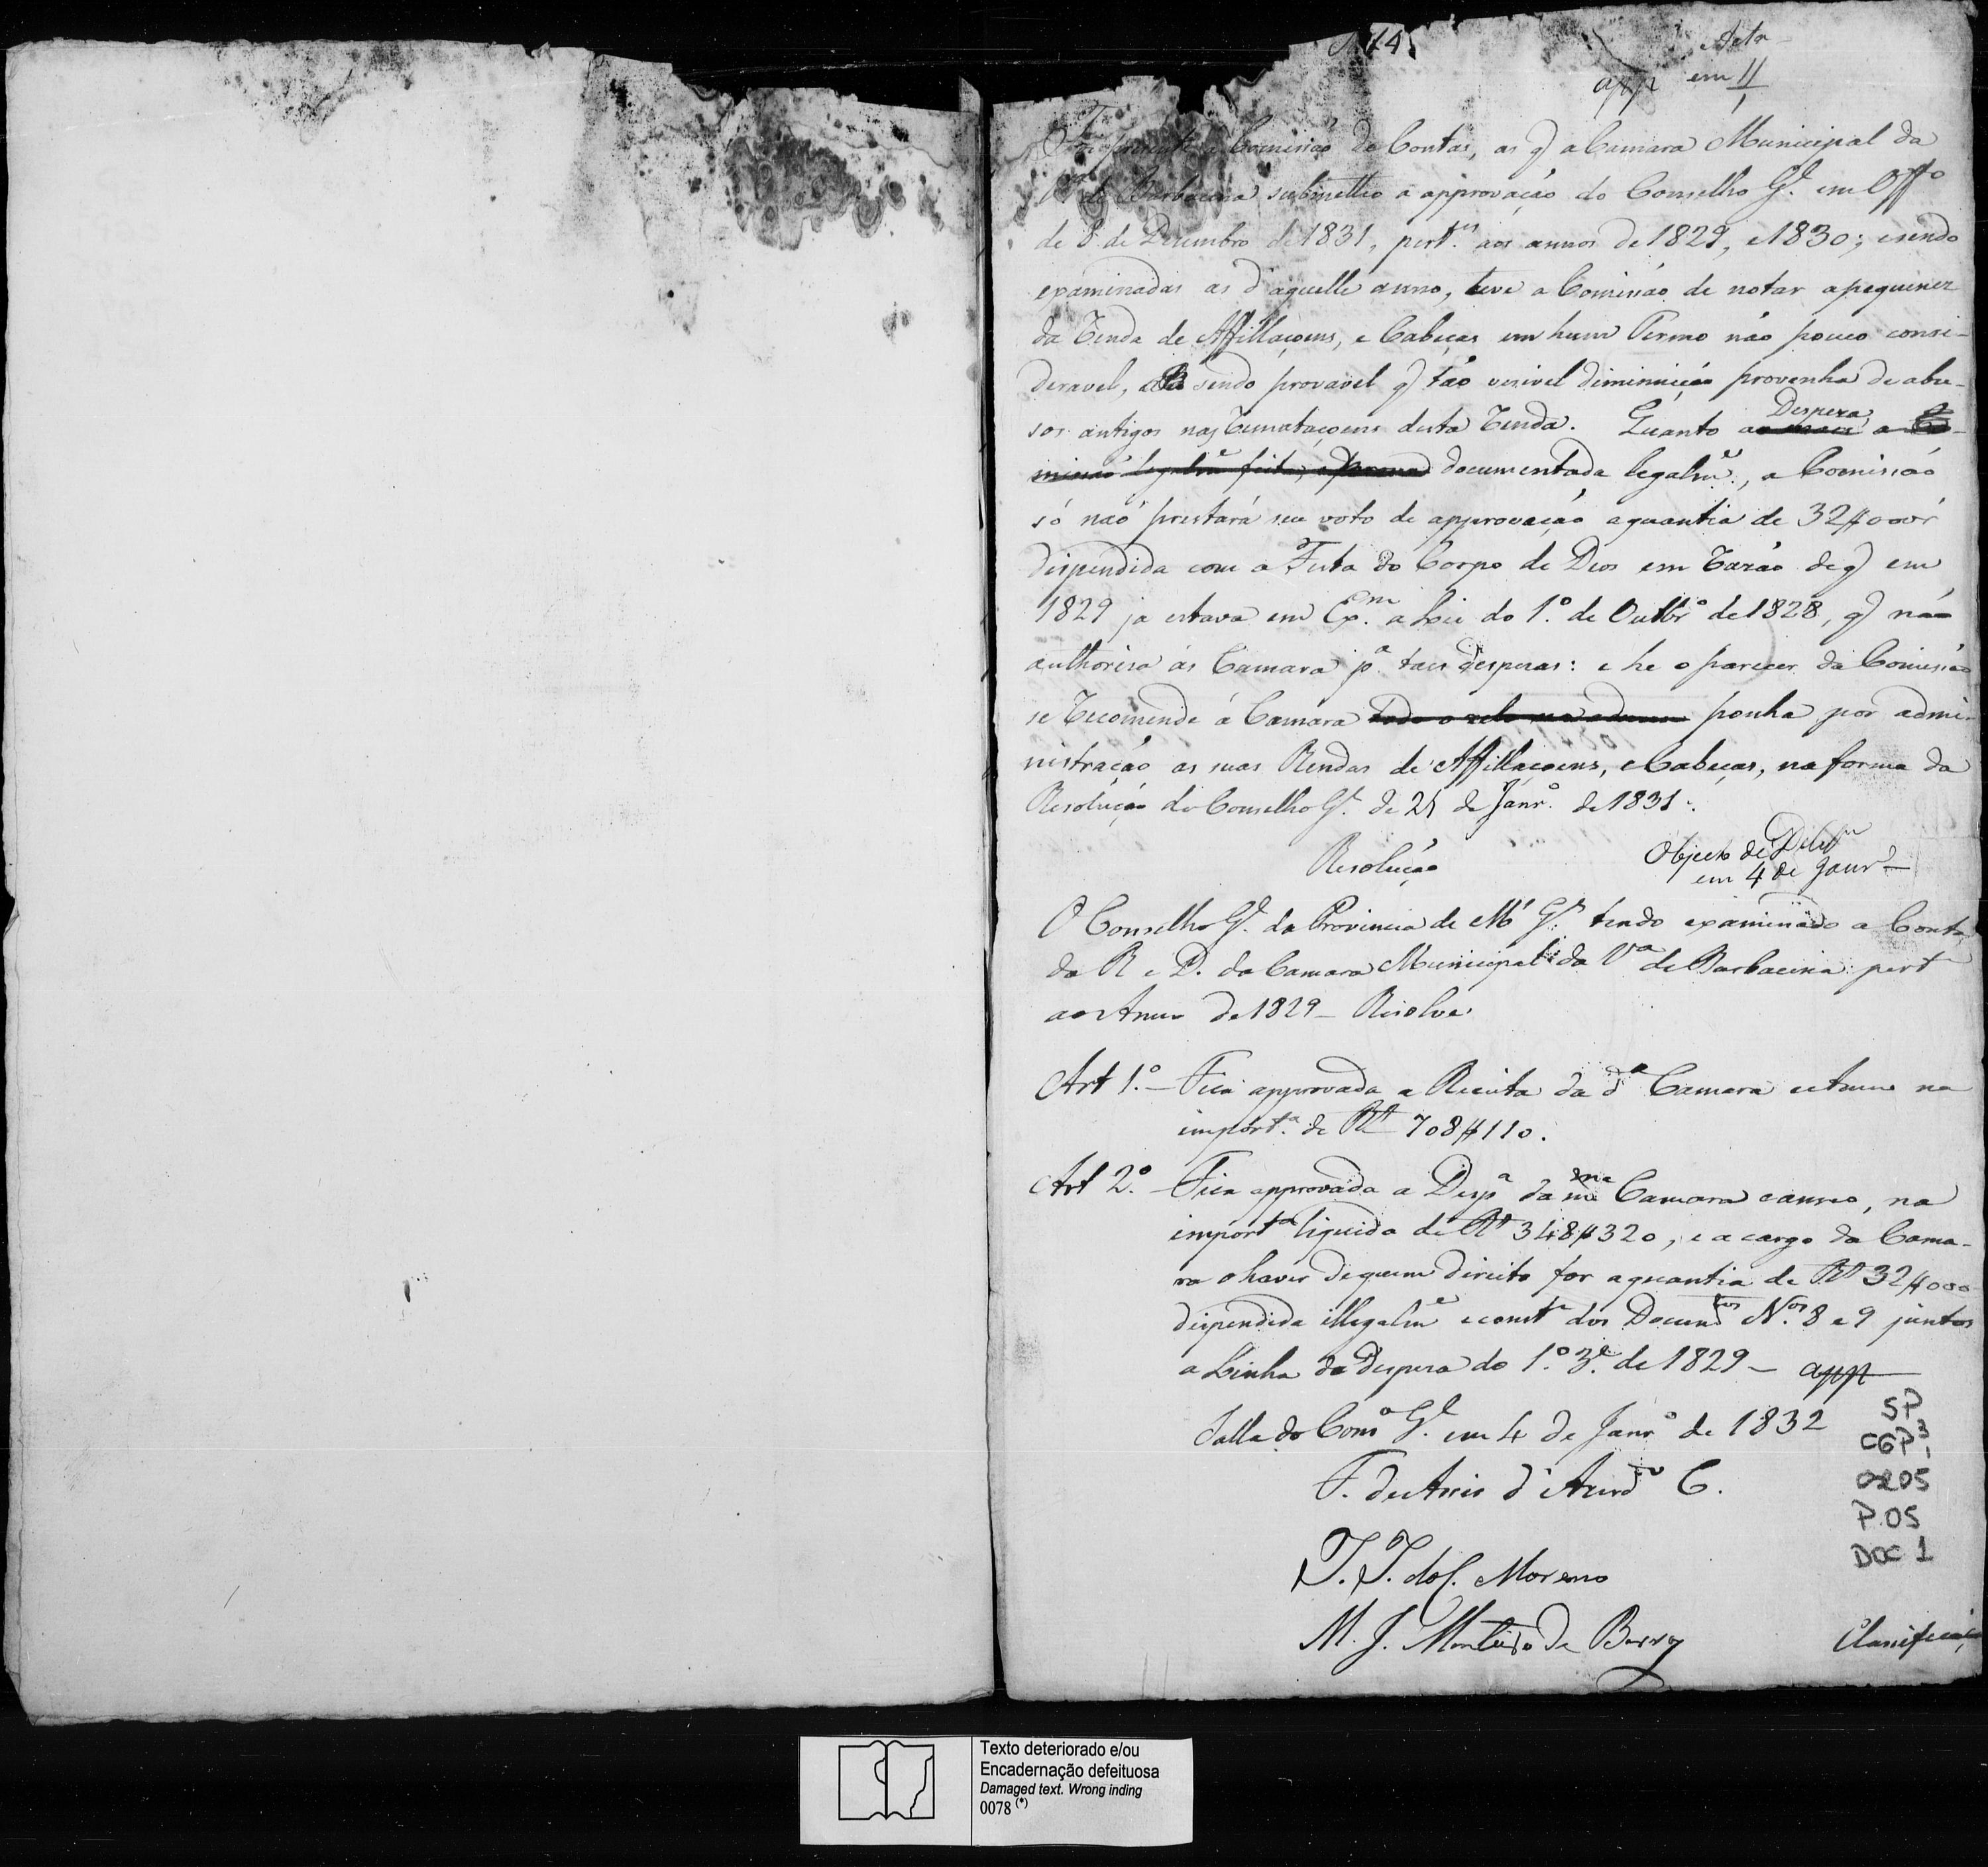 N. 74
app em 11
Foi presente á Comissão de Contas, as q a Camara Municipal da
Va de Barbacena submetteo á approvação do Conselho Gl. em Offo
de 8 de Dezembro de 1831, pert.es aos annos de 1829, e 1830; e sendo
examinadas as d'aquelle anno, teve a Comissão de notar a pequenez
da Renda de Affillaçoens, e Cabeças em hum Termo não pouco consi-
deravel, sendo provavel q tão vizivel diminuição provenha de abu-
sos antigos nas Rematações desta Renda. Quanto a Despeza
documentada legalme., a Comissão
só não prestará seu voto de approvação a quantia de 32$000r
dispendida com a Festa do Corpo de Deos em Razão de q em
1829 ja estava em Ex.m a Lei do 1.º de Outbrº de 1828, q não
authorisa ás Camara pa. taes despezas: e he o parecer da Comissão
se Recomende á Camara ponha por admi-
nistração as suas Rendas de Affillaçoens, e Cabeças, na forma da
Resolução do Conselho Gl. de 21 de Janrº. de 1831.
Resolução
Objecto de Delibm
em 4 de Janrº
O Conselho Gl. da Provincia de Ms Gs. tendo examinado a Conta
da R e D. da Camara Municipal da Va de Barbacena pert.
ao Anno de 1829 - Resolve
Art 1.º - Fica approvada a Receita da da Camara e Anno na
import.a de Rs 708$110.
Art 2.º - Fica approvada a Despa da ma Camara e anno, na
importa liquida de Rs 348$320, e a cargo da Cama-
ra o haver de quem direito fôr a quantia de Rs 32$000
dispendida illegalme e const.e dos Docum.tos N.os 8 e 9 juntos
a Linha da Despeza do 1.º 3.e de 1829 - app
Salla do Conso Gl. em 4 de Janrº de 1832
F. de Assis d'Azerdo C.
J. J. do C. Moreno
M. J. Monteiro de Barros
SP
CGP 3
1
0205
P. 05
DOC 1
Texto deteriorado e/ou
Encadernação defeituosa
Damaged text. Wrong inding
0078 (*)